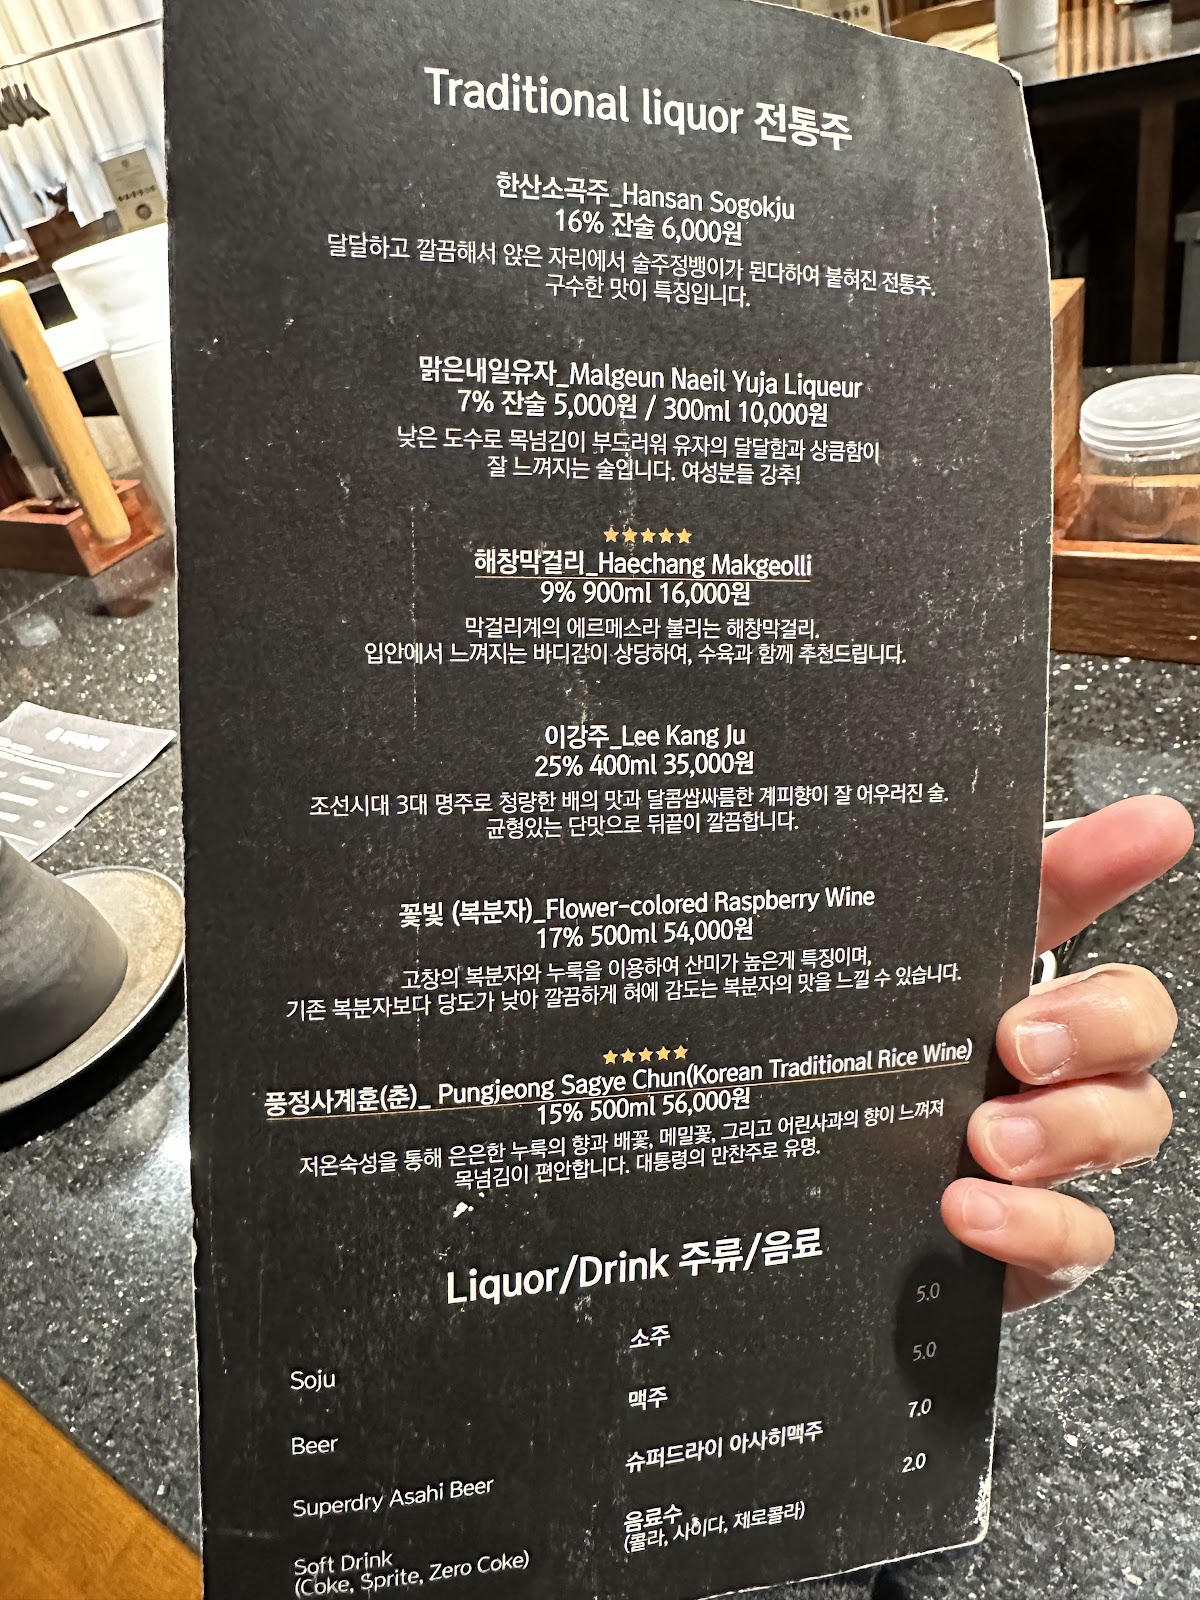 Traditional liquor 전통주
한산소곡주_Hansan Sogokju
16% 잔술 6,000원
달달하고 깔끔해서 앉은 자리에서 술주정뱅이가 된다하여 붙혀진 전통주.
구수한 맛이 특징입니다.
맑은내일유자_Malgeun Naeil Yuja Liqueur
7% 잔술 5,000원 / 300ml 10,000원
낮은 도수로 목넘김이 부드러워 유자의 달달함과 상큼함이
잘 느껴지는 술입니다. 여성분들 강추!
★★★★★
해창막걸리_Haechang Makgeolli
9% 900ml 16,000원
막걸리계의 에르메스라 불리는 해창막걸리.
입안에서 느껴지는 바디감이 상당하여, 수육과 함께 추천드립니다.
이강주_Lee Kang Ju
25% 400ml 35,000원
조선시대 3대 명주로 청량한 배의 맛과 달콤쌉싸름한 계피향이 잘 어우러진 술.
균형있는 단맛으로 뒤끝이 깔끔합니다.
꽃빛 (복분자)_Flower-colored Raspberry Wine
17% 500ml 54,000원
고창의 복분자와 누룩을 이용하여 산미가 높은게 특징이며,
기존 복분자보다 당도가 낮아 깔끔하게 혀에 감도는 복분자의 맛을 느낄 수 있습니다.
★★★★★
풍정사계훈(춘)_ Pungjeong Sagye Chun(Korean Traditional Rice Wine)
15% 500ml 56,000원
저온숙성을 통해 은은한 누룩의 향과 배꽃, 메밀꽃, 그리고 어린사과의 향이 느껴져
목넘김이 편안합니다. 대통령의 만찬주로 유명.
Liquor/Drink 주류/음료
Soju 소주 5.0
Beer 맥주 5.0
Superdry Asahi Beer 슈퍼드라이 아사히맥주 7.0
Soft Drink 음료수 2.0
(Coke, Sprite, Zero Coke) (콜라, 사이다, 제로콜라)